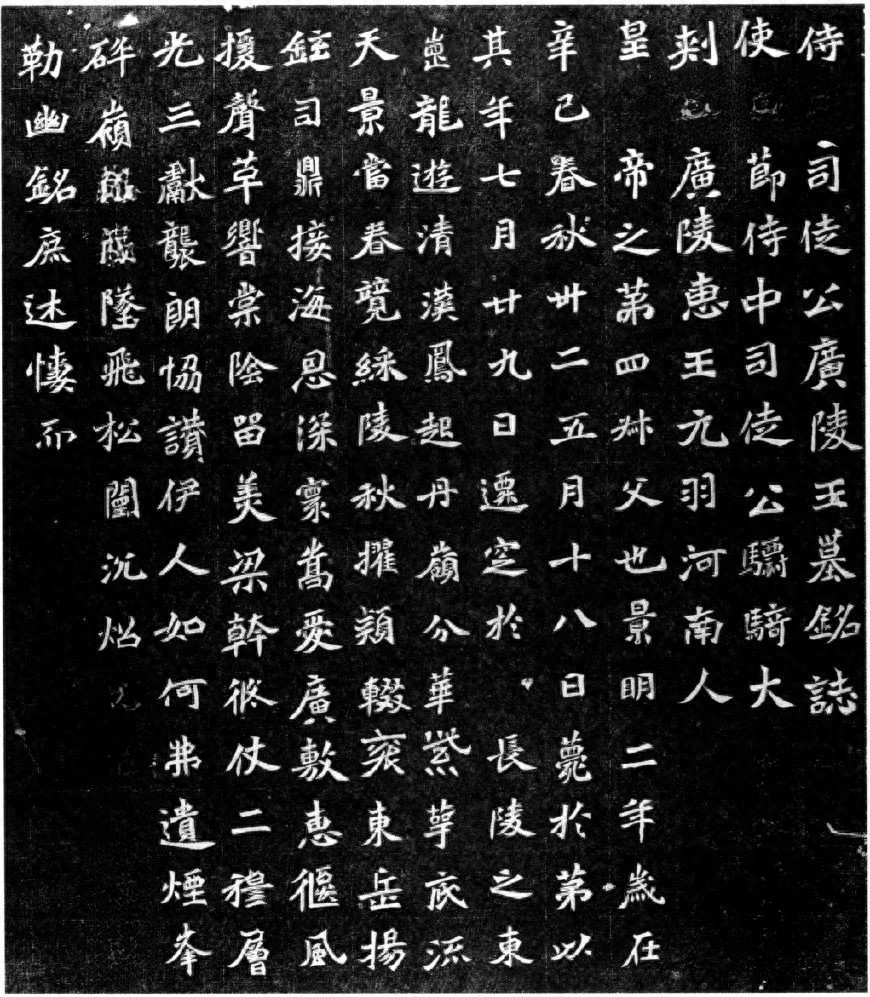 侍 司徒公廣陵王墓銘誌
使 節侍中司徒公驃騎大
刾 廣陵惠王元羽河南人
皇 帝之苐四叔父也景明二年歲在
辛巳春秋卅二五月十八日薨於苐以
其年七月廿九日遷窆於 長陵之東
崗龍遊清漢鳳起丹嶺分華紫萼底流
天景當春競綵陵秋擢穎輟衮東岳揚
鉉司鼎接海恩深寰嵩愛廣敷惠偃風
援聲草響棠陰留美梁幹將仗二穆層
光三獻襲朗協讚伊人如何弗遺煙峯
碎嶺 墜飛松闈沉炤
勒幽銘庶述悽而